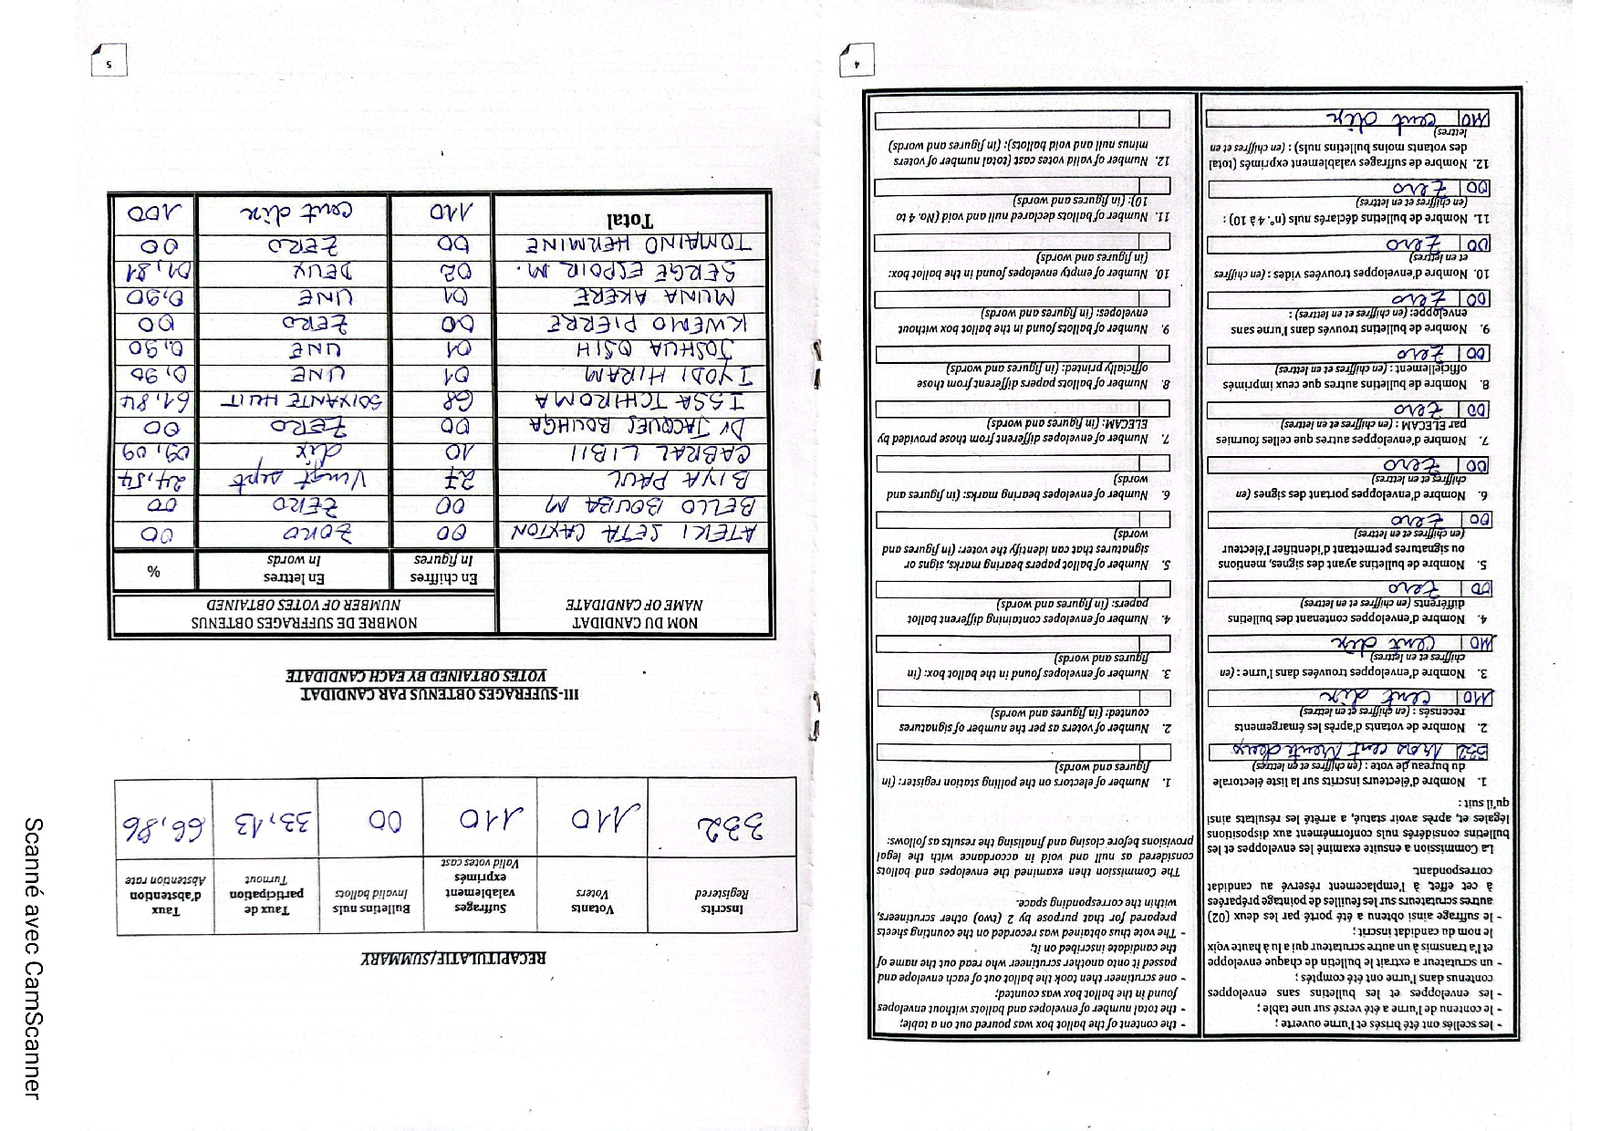 4
- les scellés ont été brisés et l'urne ouverte ;
- le contenu de l'urne a été versé sur une table ;
- les enveloppes et les bulletins sans enveloppes
contenus dans l'urne ont été comptés ;
- un scrutateur a extrait le bulletin de chaque enveloppe
et l'a transmis à un autre scrutateur qui a lu à haute voix
le nom du candidat inscrit ;
- le suffrage ainsi obtenu a été porté par les deux (02)
autres scrutateurs sur les feuilles de pointage préparées
à cet effet à l'emplacement réservé au candidat
correspondant.
La Commission a ensuite examiné les enveloppes et les
bulletins considérés nuls conformément aux dispositions
légales et, après avoir statué, a arrêté les résultats ainsi
qu'il suit :
1. Nombre d'électeurs inscrits sur la liste électorale
du bureau de vote : (en chiffres et en lettres)
332 trois cent trente deux
2. Nombre de votants d'après les émargements
recensés : (en chiffres et en lettres)
110 cent dix
3. Nombre d'enveloppes trouvées dans l'urne : (en
chiffres et en lettres)
110 cent dix
4. Nombre d'enveloppes contenant des bulletins
différents (en chiffres et en lettres)
00 Zero
5. Nombre de bulletins ayant des signes, mentions
ou signatures permettant d'identifier l'électeur
(en chiffres et en lettres)
00 Zero
6. Nombre d'enveloppes portant des signes (en
chiffres et en lettres)
00 Zero
7. Nombre d'enveloppes autres que celles fournies
par ELECAM : (en chiffres et en lettres)
00 Zero
8. Nombre de bulletins autres que ceux imprimés
officiellement : (en chiffres et en lettres)
00 Zero
9. Nombre de bulletins trouvés dans l'urne sans
enveloppe: (en chiffres et en lettres) :
00 Zero
10. Nombre d'enveloppes trouvées vides : (en chiffres
et en lettres)
00 Zero
11. Nombre de bulletins déclarés nuls (n°. 4 à 10) :
(en chiffres et en lettres)
00 Zero
12. Nombre de suffrages valablement exprimés (total
des votants moins bulletins nuls) : (en chiffres et en
lettres)
110 cent dix
- the content of the ballot box was poured out on a table;
- the total number of envelopes and ballots without envelopes
found in the ballot box was counted;
- one scrutineer then took the ballot out of each envelope and
passed it onto another scrutineer who read out the name of
the candidate inscribed on it;
- The vote thus obtained was recorded on the counting sheets
prepared for that purpose by 2 (two) other scrutineers,
within the corresponding space.
The Commission then examined the envelopes and ballots
considered as null and void in accordance with the legal
provisions before closing and finalising the results as follows:
1. Number of electors on the polling station register: (in
figures and words)
2. Number of voters as per the number of signatures
counted: (in figures and words)
3. Number of envelopes found in the ballot box: (in
figures and words)
4. Number of envelopes containing different ballot
papers: (in figures and words)
5. Number of ballot papers bearing marks, signs or
signatures that can identify the voter: (in figures and
words
6. Number of envelopes bearing marks: (in figures and
words)
7. Number of envelopes different from those provided by
ELECAM: (in figures and words)
8. Number of ballots papers different from those
officially printed: (in figures and words)
9. Number of ballots found in the ballot box without
envelopes: (in figures and words)
10. Number of empty envelopes found in the ballot box:
(in figures and words)
11. Number of ballots declared null and void (No. 4 to
10): (in figures and words)
12. Number of valid votes cast (total number of voters
minus null and void ballots): (in figures and words)
5
RECAPITULATIF/SUMMARY
Inscrits Registered | Votants Voters | Suffrages valablement exprimés Valid votes cast | Bulletins nuls Invalid ballots | Taux de participation Turnout | Taux d'abstention Abstention rate
332 | 110 | 110 | 00 | 33,13 | 66,86
III-SUFFRAGES OBTENUS PAR CANDIDAT
VOTES OBTAINED BY EACH CANDIDATE
NOM DU CANDIDAT NAME OF CANDIDATE | NOMBRE DE SUFFRAGES OBTENUS NUMBER OF VOTES OBTAINED
En chiffres In figures | En lettres In words | %
ATEKI SETA CAXTON 00 ZORO 00
BELLO BOUBA M 00 ZERO 00
BIYA PAUL 27 Vingt sept 24,54
CABRAL LIBII 10 dix 09,09
Dr JACQUES BOUHGA 00 ZERO 00
ISSA TCHIROMA 68 SOIXANTE HUIT 61,84
IYODI HIRAM 01 UNE 0,90
JOSHUA OSIH 01 UNE 0,90
KWEMO PIERRE 00 ZERO 00
MUNA AKERE 01 UNE 0,90
SERGE ESPOIR M. 02 DEUX 01,81
TOMAINO HERMINE 00 ZERO 00
Total 110 cent dix 100
Scanné avec CamScanner